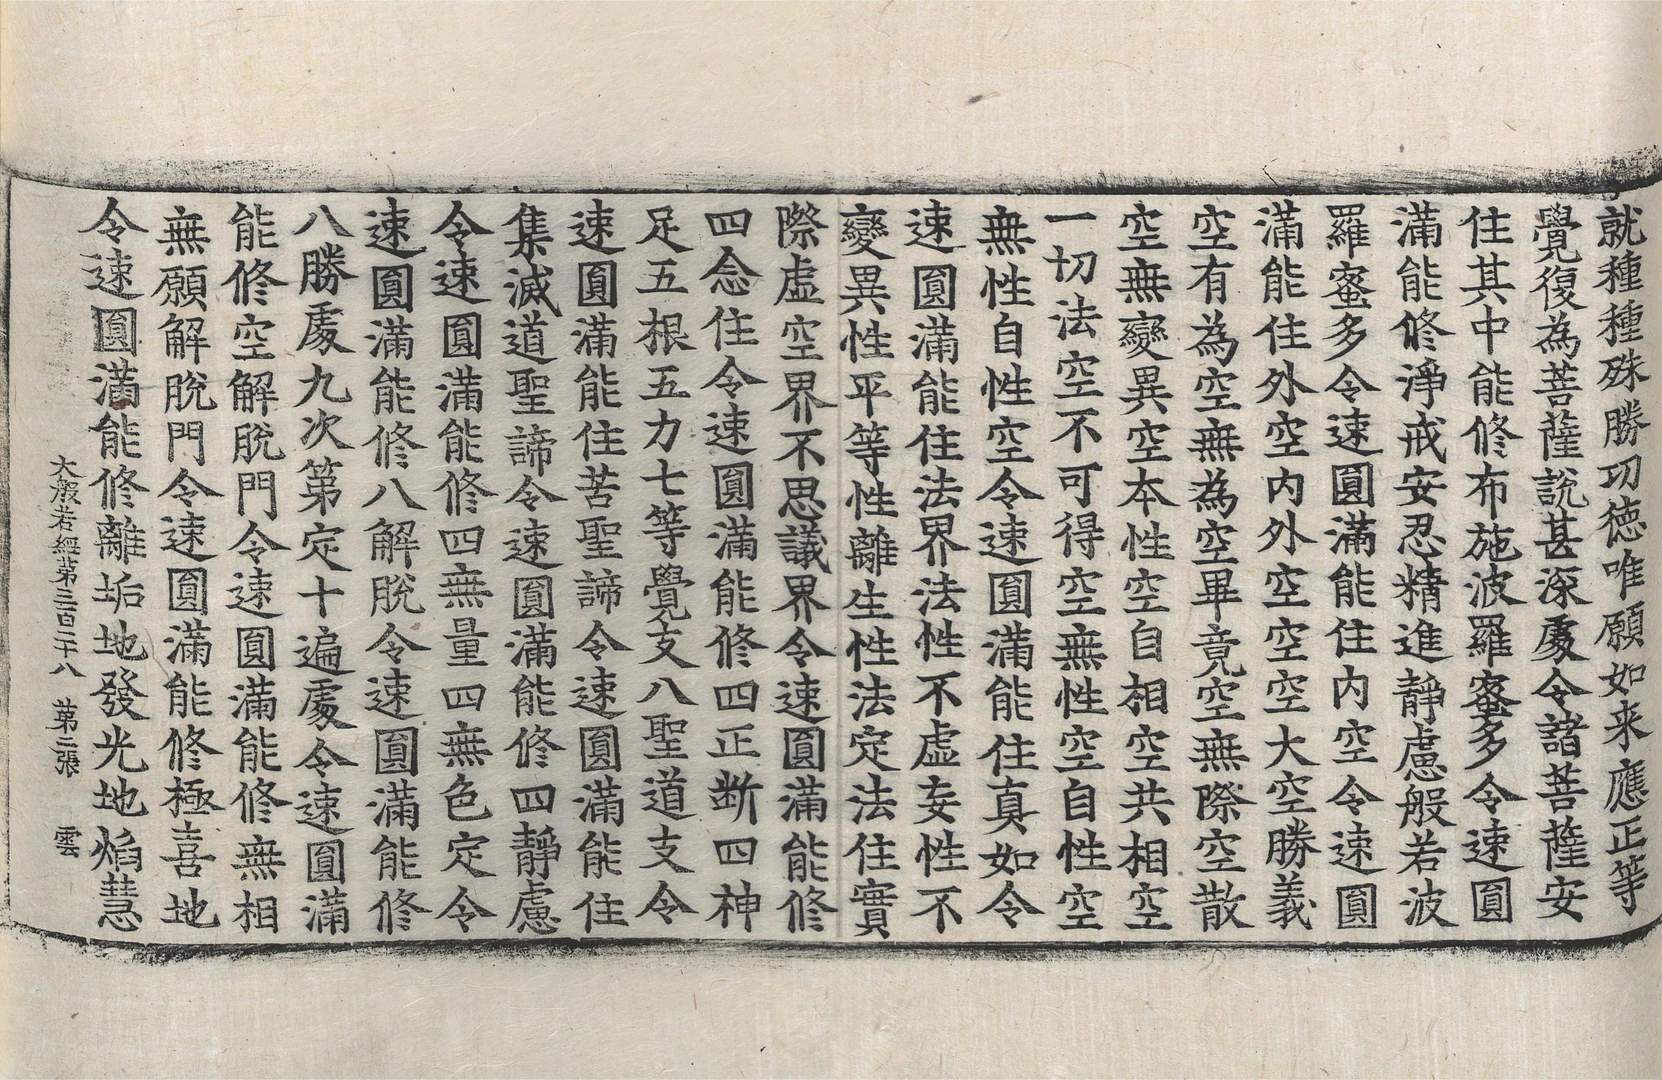 就種種殊勝功德唯願如来應正等
覺復為菩薩說甚深處令諸菩薩安
住其中能修布施波羅蜜多令速圓
滿能修淨戒安忍精進靜慮般若波
羅蜜多令速圓滿能住內空令速圓
滿能住外空內外空空空大空勝義
空有為空無為空畢竟空無際空散
空無變異空本性空自相空共相空
一切法空不可得空無性空自性空
無性自性空令速圓滿能住真如令
速圓滿能住法界法性不虛妄性不
變異性平等性離生性法定法住實
際虛空界不思議界令速圓滿能修
四念住令速圓滿能修四正断四神
足五根五力七等覺支八聖道支令
速圓滿能住苦聖諦令速圓滿能住
集滅道聖諦令速圓滿能修四靜慮
令速圓滿能修四無量四無色定令
速圓滿能修八解脫令速圓滿能修
八勝處九次第定十遍處令速圓滿
能修空解脫門令速圓滿能修無相
無願解脫門令速圓滿能修極喜地
令速圓滿能修離垢地發光地焰慧
大般若經第三百二十八 第二張 雲